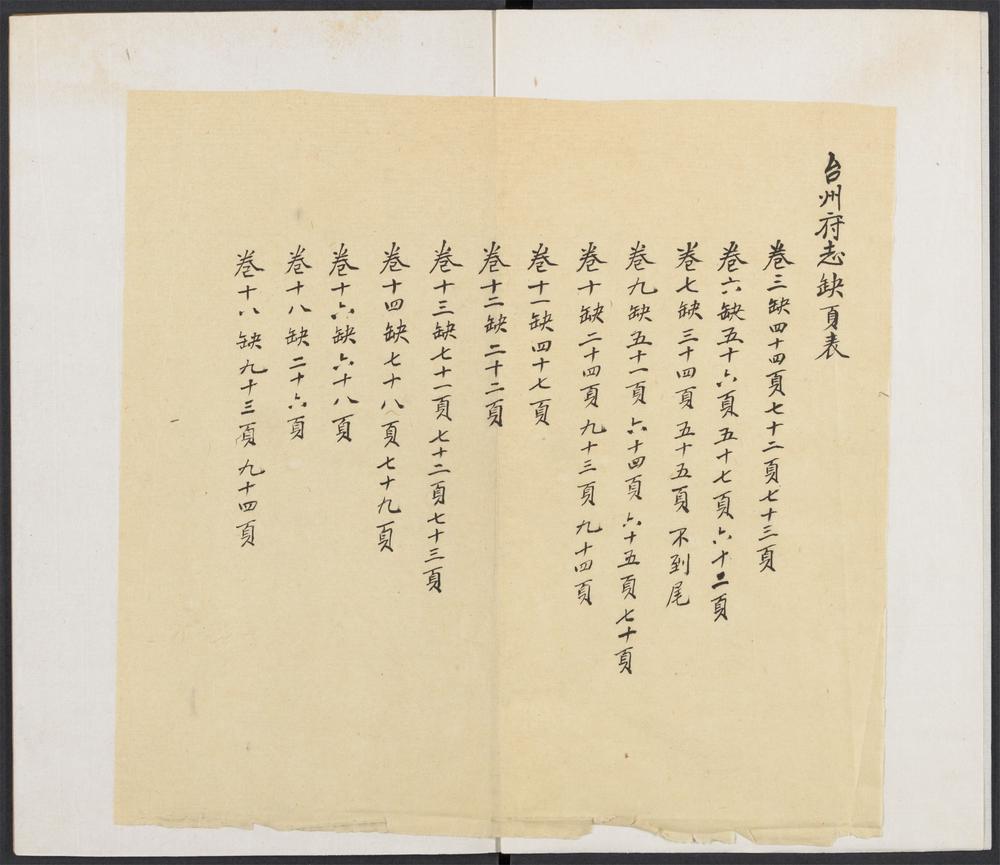 台州府志缺頁表
卷三缺四十四頁七十二頁七十三頁
卷六缺五十六頁五十七頁六十二頁
卷七缺三十四頁五十五頁不到尾
卷九缺五十一頁六十四頁六十五頁七十頁
卷十缺二十四頁九十三頁九十四頁
卷十一缺四十七頁
卷十二缺二十二頁
卷十三缺七十一頁七十二頁七十三頁
卷十四缺七十八頁七十九頁
卷十六缺六十八頁
卷十八缺二十六頁
卷十八缺九十三頁九十四頁